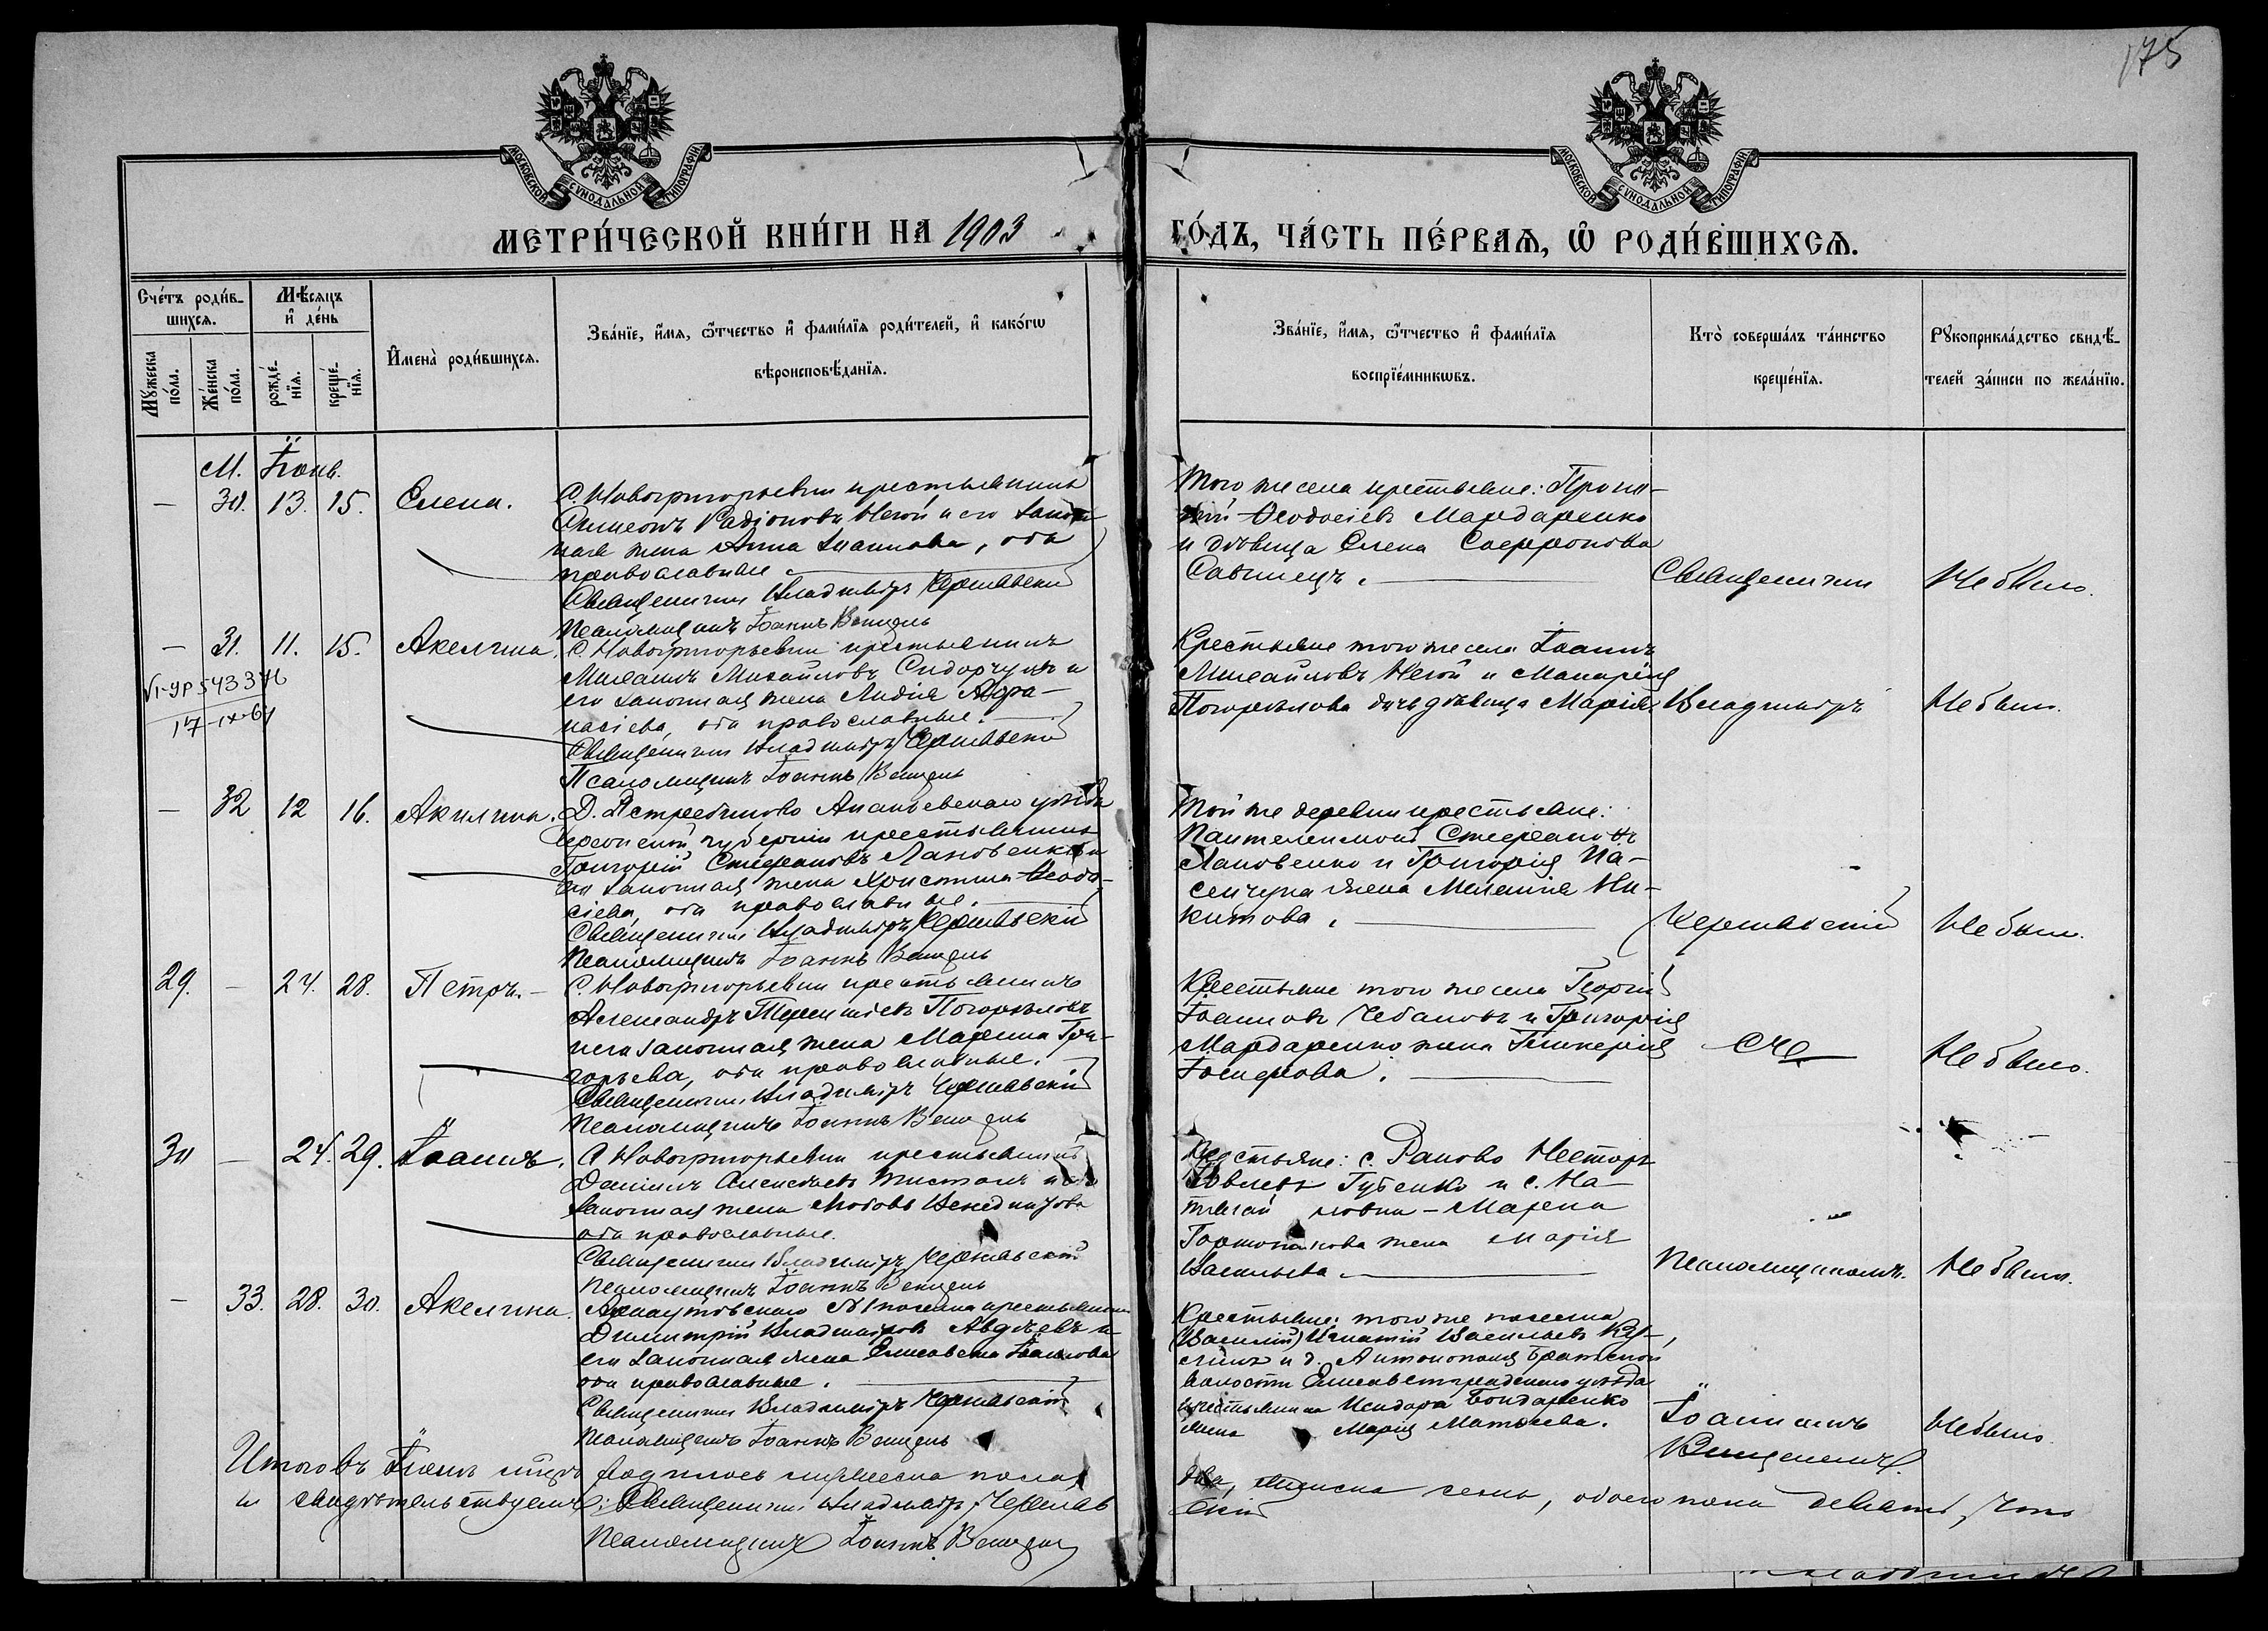 175
МОСКОВСКОЙ СУНОДАЛЬНОЙ ТИПОГРАФІИ
МОСКОВСКОЙ СУНОДАЛЬНОЙ ТИПОГРАФІИ
МЕТРИ́ЧЕСКОЙ КНИ́ГИ НА 1903 ГО́ДЪ, ЧА́СТЬ ПЕ́РВАѦ, Ѡ РОДИ́ВШИХСѦ.
Сче́тъ роди́в-
шихсѧ.
Мꙋ́жеска по́ла.
Же́нска по́ла.
Мѣ́сѧцъ
и҆ де́нь
рожде́-
нїѧ.
креще́-
нїѧ.
И҆мена̀ роди́вшихсѧ.
Зва́нїе, и҆́мѧ, ѻ҆́тчество и҆ фами́лїѧ роди́телей, и҆ како́гѡ
вѣроисповѣ́данїѧ.
Зва́нїе, и҆́мѧ, ѻ҆́тчество и҆ фами́лїѧ
воспрїе́мникѡвъ.
Кто̀ соверша́лъ та́инство
креще́нїѧ.
Рꙋкоприкла́дство свидѣ́-
телей за́писи по жела́нїю.
М. Іюнь.
— 30. 13. 15. Елена.
С. Новогригорьевки крестьянинъ
Симеонъ Радіоновъ Негой и его закон-
ная жена Анна Іоаннова, оба
православные
Священникъ Владиміръ Чернявскій
Псаломщикъ Іоаннъ
Того же села крестьяне: Проко-
пій Ѳеодосіевъ Мардаренко
и дѣвица Елена Софронова
Савинецъ.
Священникъ
Не было.
— 31. 11. 15. Акелина.
VI-УР 543376
17-IX-61
С. Новогригорьевки крестьянинъ
Михаилъ Михайловъ Сидорчукъ и
его законная жена Лидія Аѳа-
насіева, оба православные.
Священникъ Владиміръ Чернявскій
Псаломщикъ Іоаннъ
Крестьяне того же села Іоаннъ
Михайловъ Негой и Макарія
Погорѣлова дочь дѣвица Марія.
Владиміръ
Не было.
— 32 12 16. Акилина.
Д. Ястребиново Ананьевскаго уѣзда
Херсонской губерніи крестьянинъ
Григорій Стефановъ Лановенко и
его законная жена Христина Ѳеодо-
сіева, оба православные.
Священникъ Владиміръ Чернявскій
Псаломщикъ Іоаннъ
Той же деревни крестьяне:
Пантелеимонъ Стефановъ
Лановенко и Григорія Па-
сечука жена Меланія Ни-
китова.
Чернявскій
Не было.
29. — 24. 28. Петръ.
С. Новогригорьевки крестьянинъ
Александръ Терентіевъ Погорѣловъ
и его законная жена Марина Гри-
горьева, оба православные.
Священникъ Владиміръ Чернявскій
Псаломщикъ Іоаннъ
Крестьяне того же села Георгій
Іоанновъ Чебановъ и Григорія
Мардаренко жена Гликерія
Іосифова.
съ
Не было.
30 — 24. 29. Іоаннъ.
С. Новогригорьевки крестьянинъ
Даніилъ Алексѣевъ и его
законная жена Любовь Венедиктова
оба православные.
Священникъ Владиміръ Чернявскій
Псаломщикъ Іоаннъ
Крестьяне: с. Раково Несторъ
Іовлевъ Губенко и с. На-
Марія
Васильева.
Псаломщикомъ.
Не было.
— 33. 28. 30. Акелина.
Арнаутовскаго № 1 поселка крестьянинъ
Димитрій Владиміровъ Авдѣевъ и
его законная жена Елисавета Іоаннова
оба православные.
Священникъ Владиміръ Чернявскій
Псаломщикъ Іоаннъ
Крестьяне: того же поселка
(Василій) Игнатій Васильевъ
и д. Антонополя Братской
волости Елисаветградскаго уѣзда
крестьянина Исидора Бондаренко
жена Марія Матѳеева.
Іоанномъ
Не было.
Итого въ Іюнѣ мѣсяцѣ родилось мужеска пола два, женска семь, обоего пола девять, что
и свидѣтельствуемъ: Священникъ Владиміръ Чернявскій
Псаломщикъ Іоаннъ